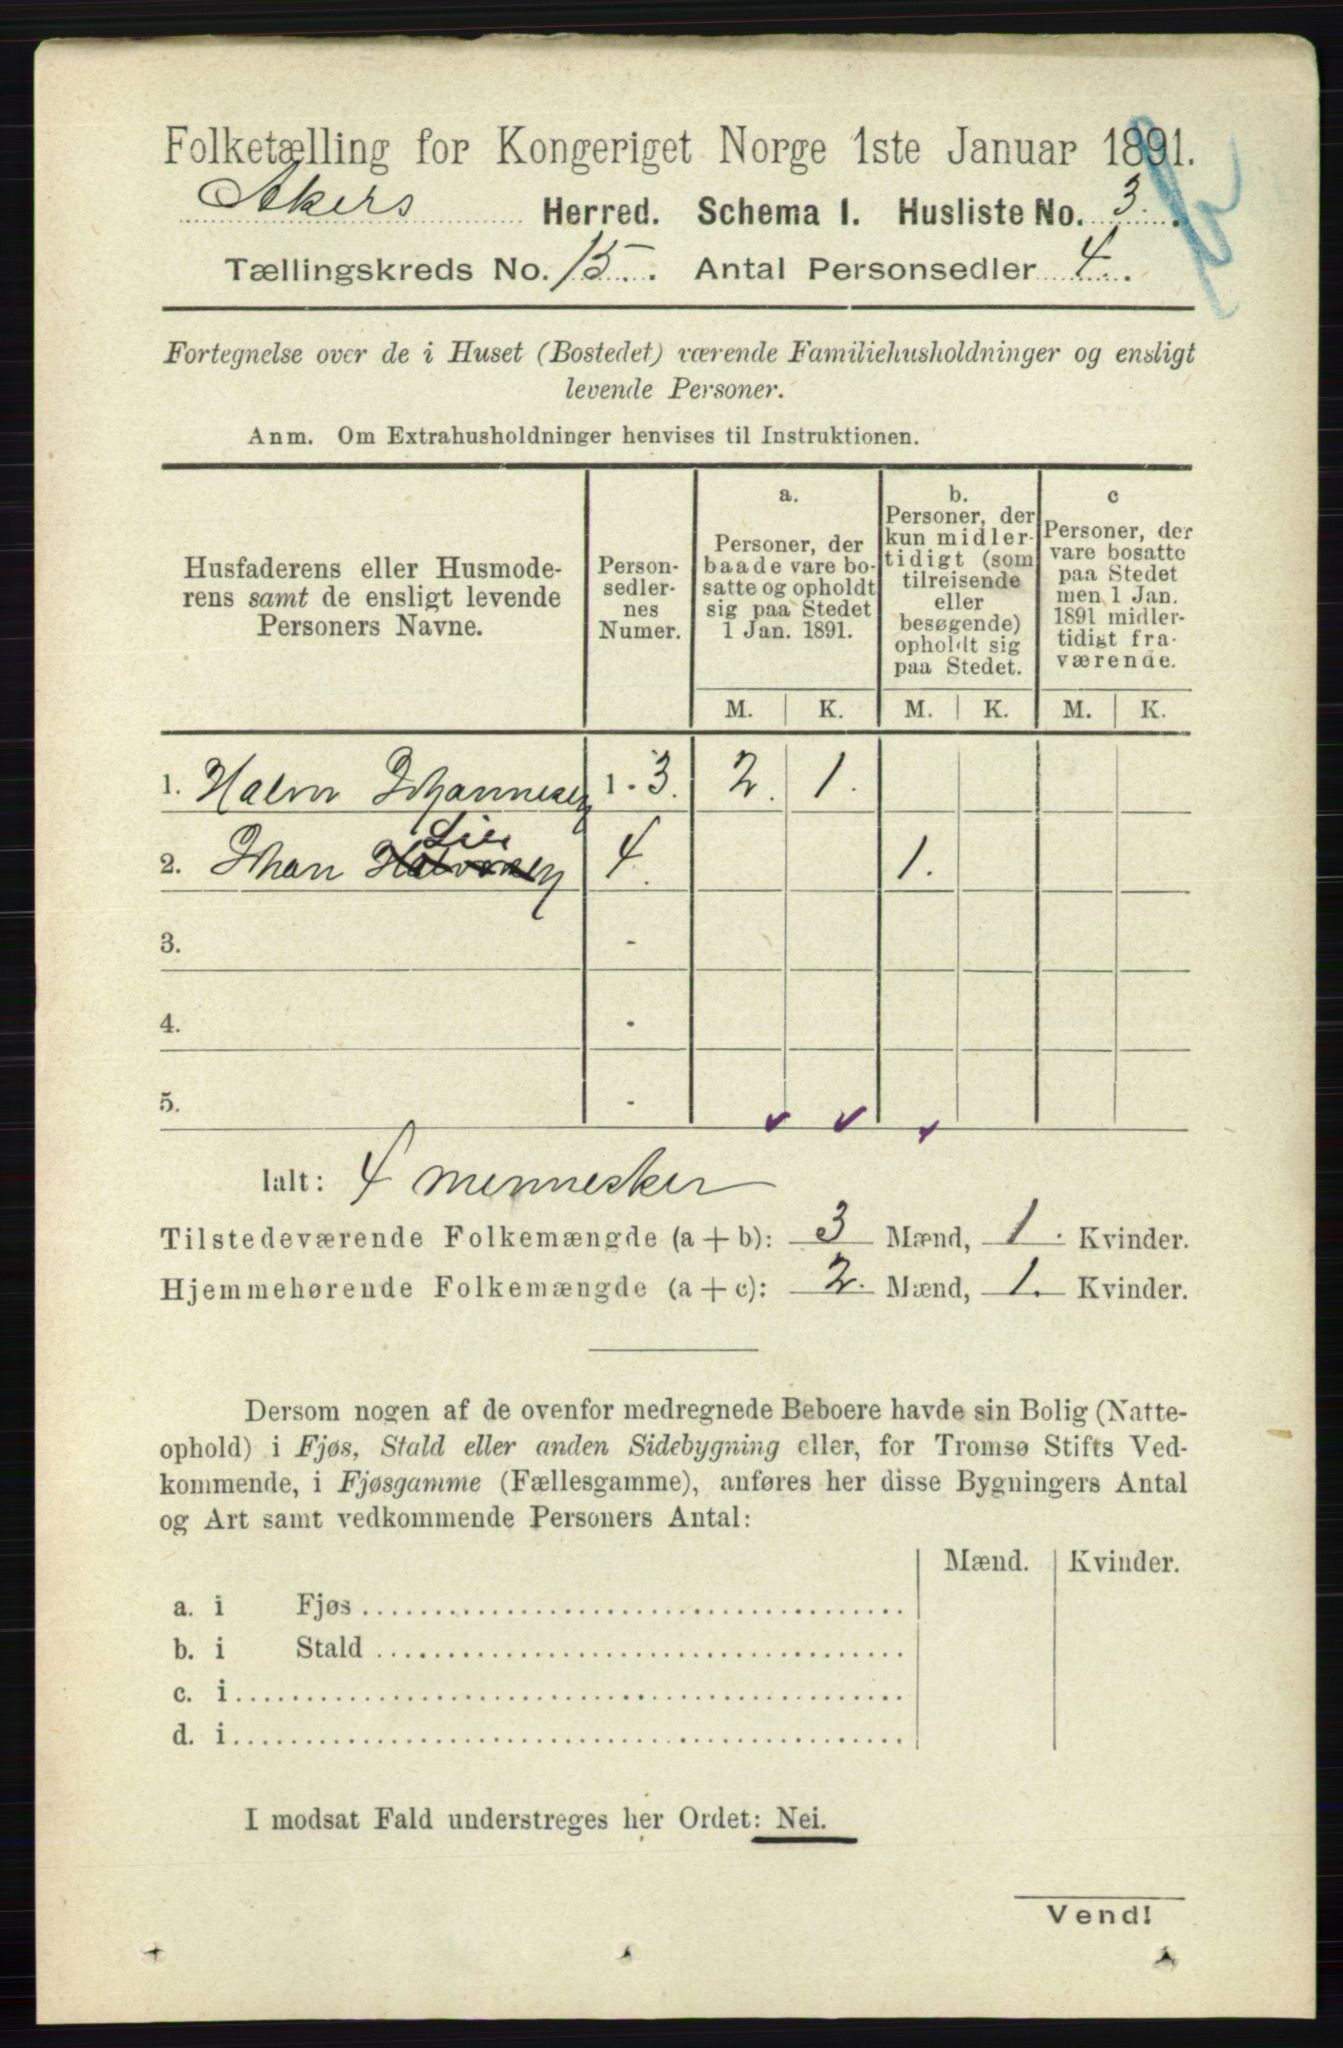 Folketælling for Kongeriget Norge 1ste Januar 1891.
Akers Herred. Schema I. Husliste No. 3.
Tællingskreds No. 15. Antal Personsedler 4.
Fortegnelse over de i Huset (Bostedet) værende Familiehusholdninger og ensligt
levende Personer.
Anm. Om Extrahusholdninger henvises til Instruktionen.
Husfaderens eller Husmode-
rens samt de ensligt levende
Personers Navne.
Person-
sedler-
nes
Numer.
a.
Personer, der
baade vare bo-
satte og opholdt
sig paa Stedet
1 Jan. 1891.
b.
Personer, der
kun midler-
tidigt (som
tilreisende
eller
besøgende)
opholdt sig
paa Stedet.
c
Personer, der
vare bosatte
paa Stedet
men 1 Jan.
1891 midler-
tidigt fra-
værende.
M. K. M. K. M. K.
1. Halvor Johannesen 1 - 3. 2. 1.
Lie
2. Johan Halvorsen 4. 1.
3. -
4. -
5. -
Ialt: 4 mennesker
Tilstedeværende Folkemængde (a + b): 3 Mænd, 1. Kvinder.
Hjemmehørende Folkemængde (a + c): 2. Mænd, 1. Kvinder.
Dersom nogen af de ovenfor medregnede Beboere havde sin Bolig (Natte-
ophold) i Fjøs, Stald eller anden Sidebygning eller, for Tromsø Stifts Ved-
kommende, i Fjøsgamme (Fællesgamme), anføres her disse Bygningers Antal
og Art samt vedkommende Personers Antal:
Mænd. Kvinder.
a. i Fjøs
b. i Stald
c. i
d. i
I modsat Fald understreges her Ordet: Nei.
Vend!